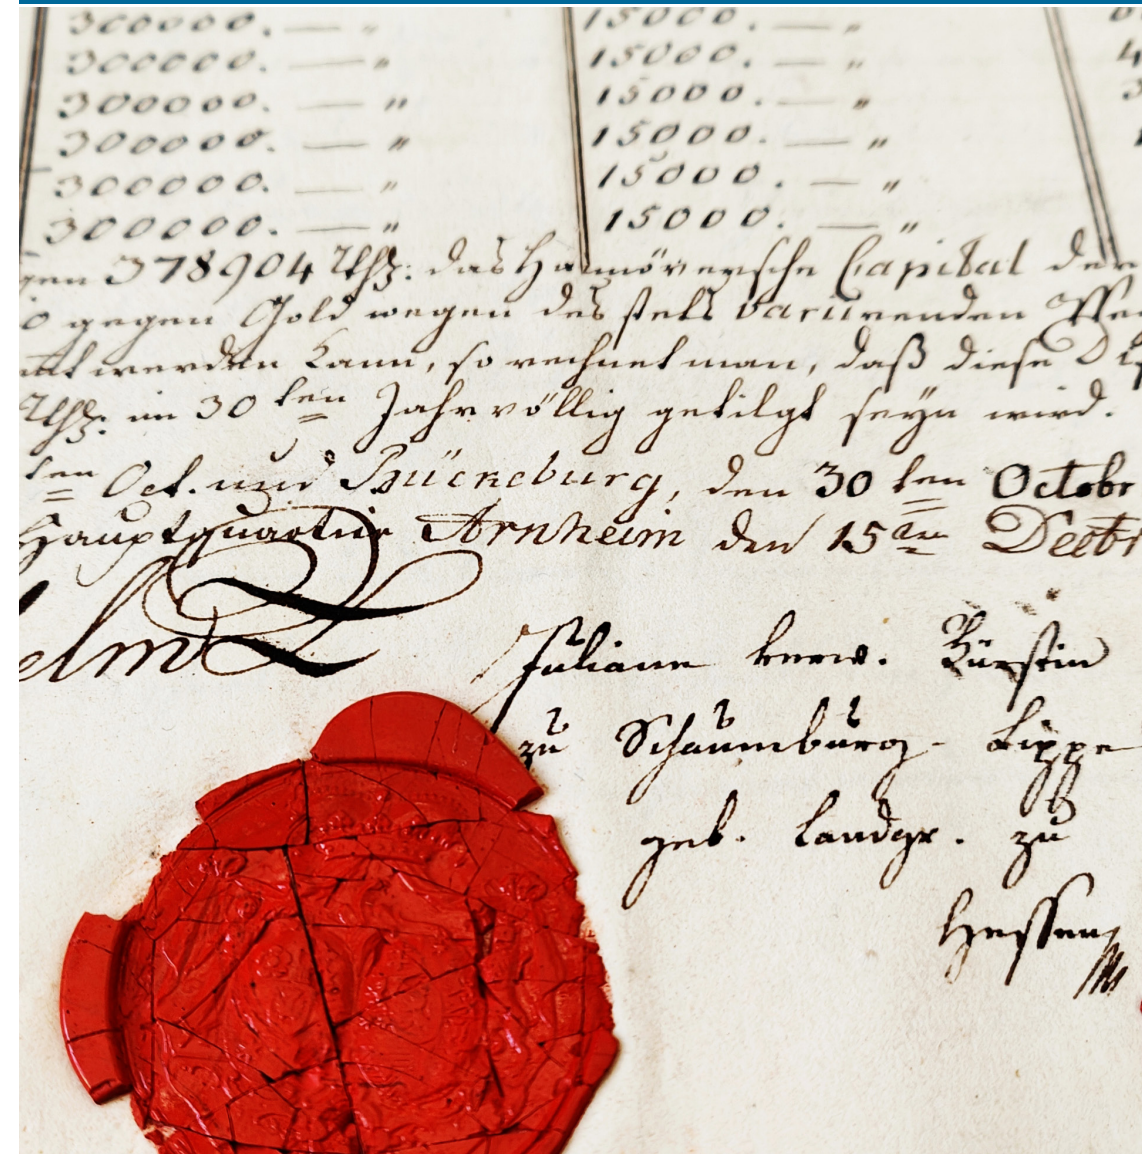 300000. — " 15000. — "
300000. — " 15000. — " 4
300000. — " 15000. — " 3
300000. — " 15000. — "
300000. — " 15000. — "
300000. — " 15000. — "
gen 378904 Rthlr: das Hannöversche Capital der
o gegen Gold wegen des stets variirenden
werden kann, so rechnet man, daß diese
Rthlr: im 30ten Jahr völlig getilgt seyn wird.
ten Oct. und Bückeburg, den 30ten Octobr
Hauptquartier Arnheim den 15ten Decbr
elm
Juliane verw. Fürstin
zu Schaumburg-Lippe
geb. Landgr. zu
Hessen